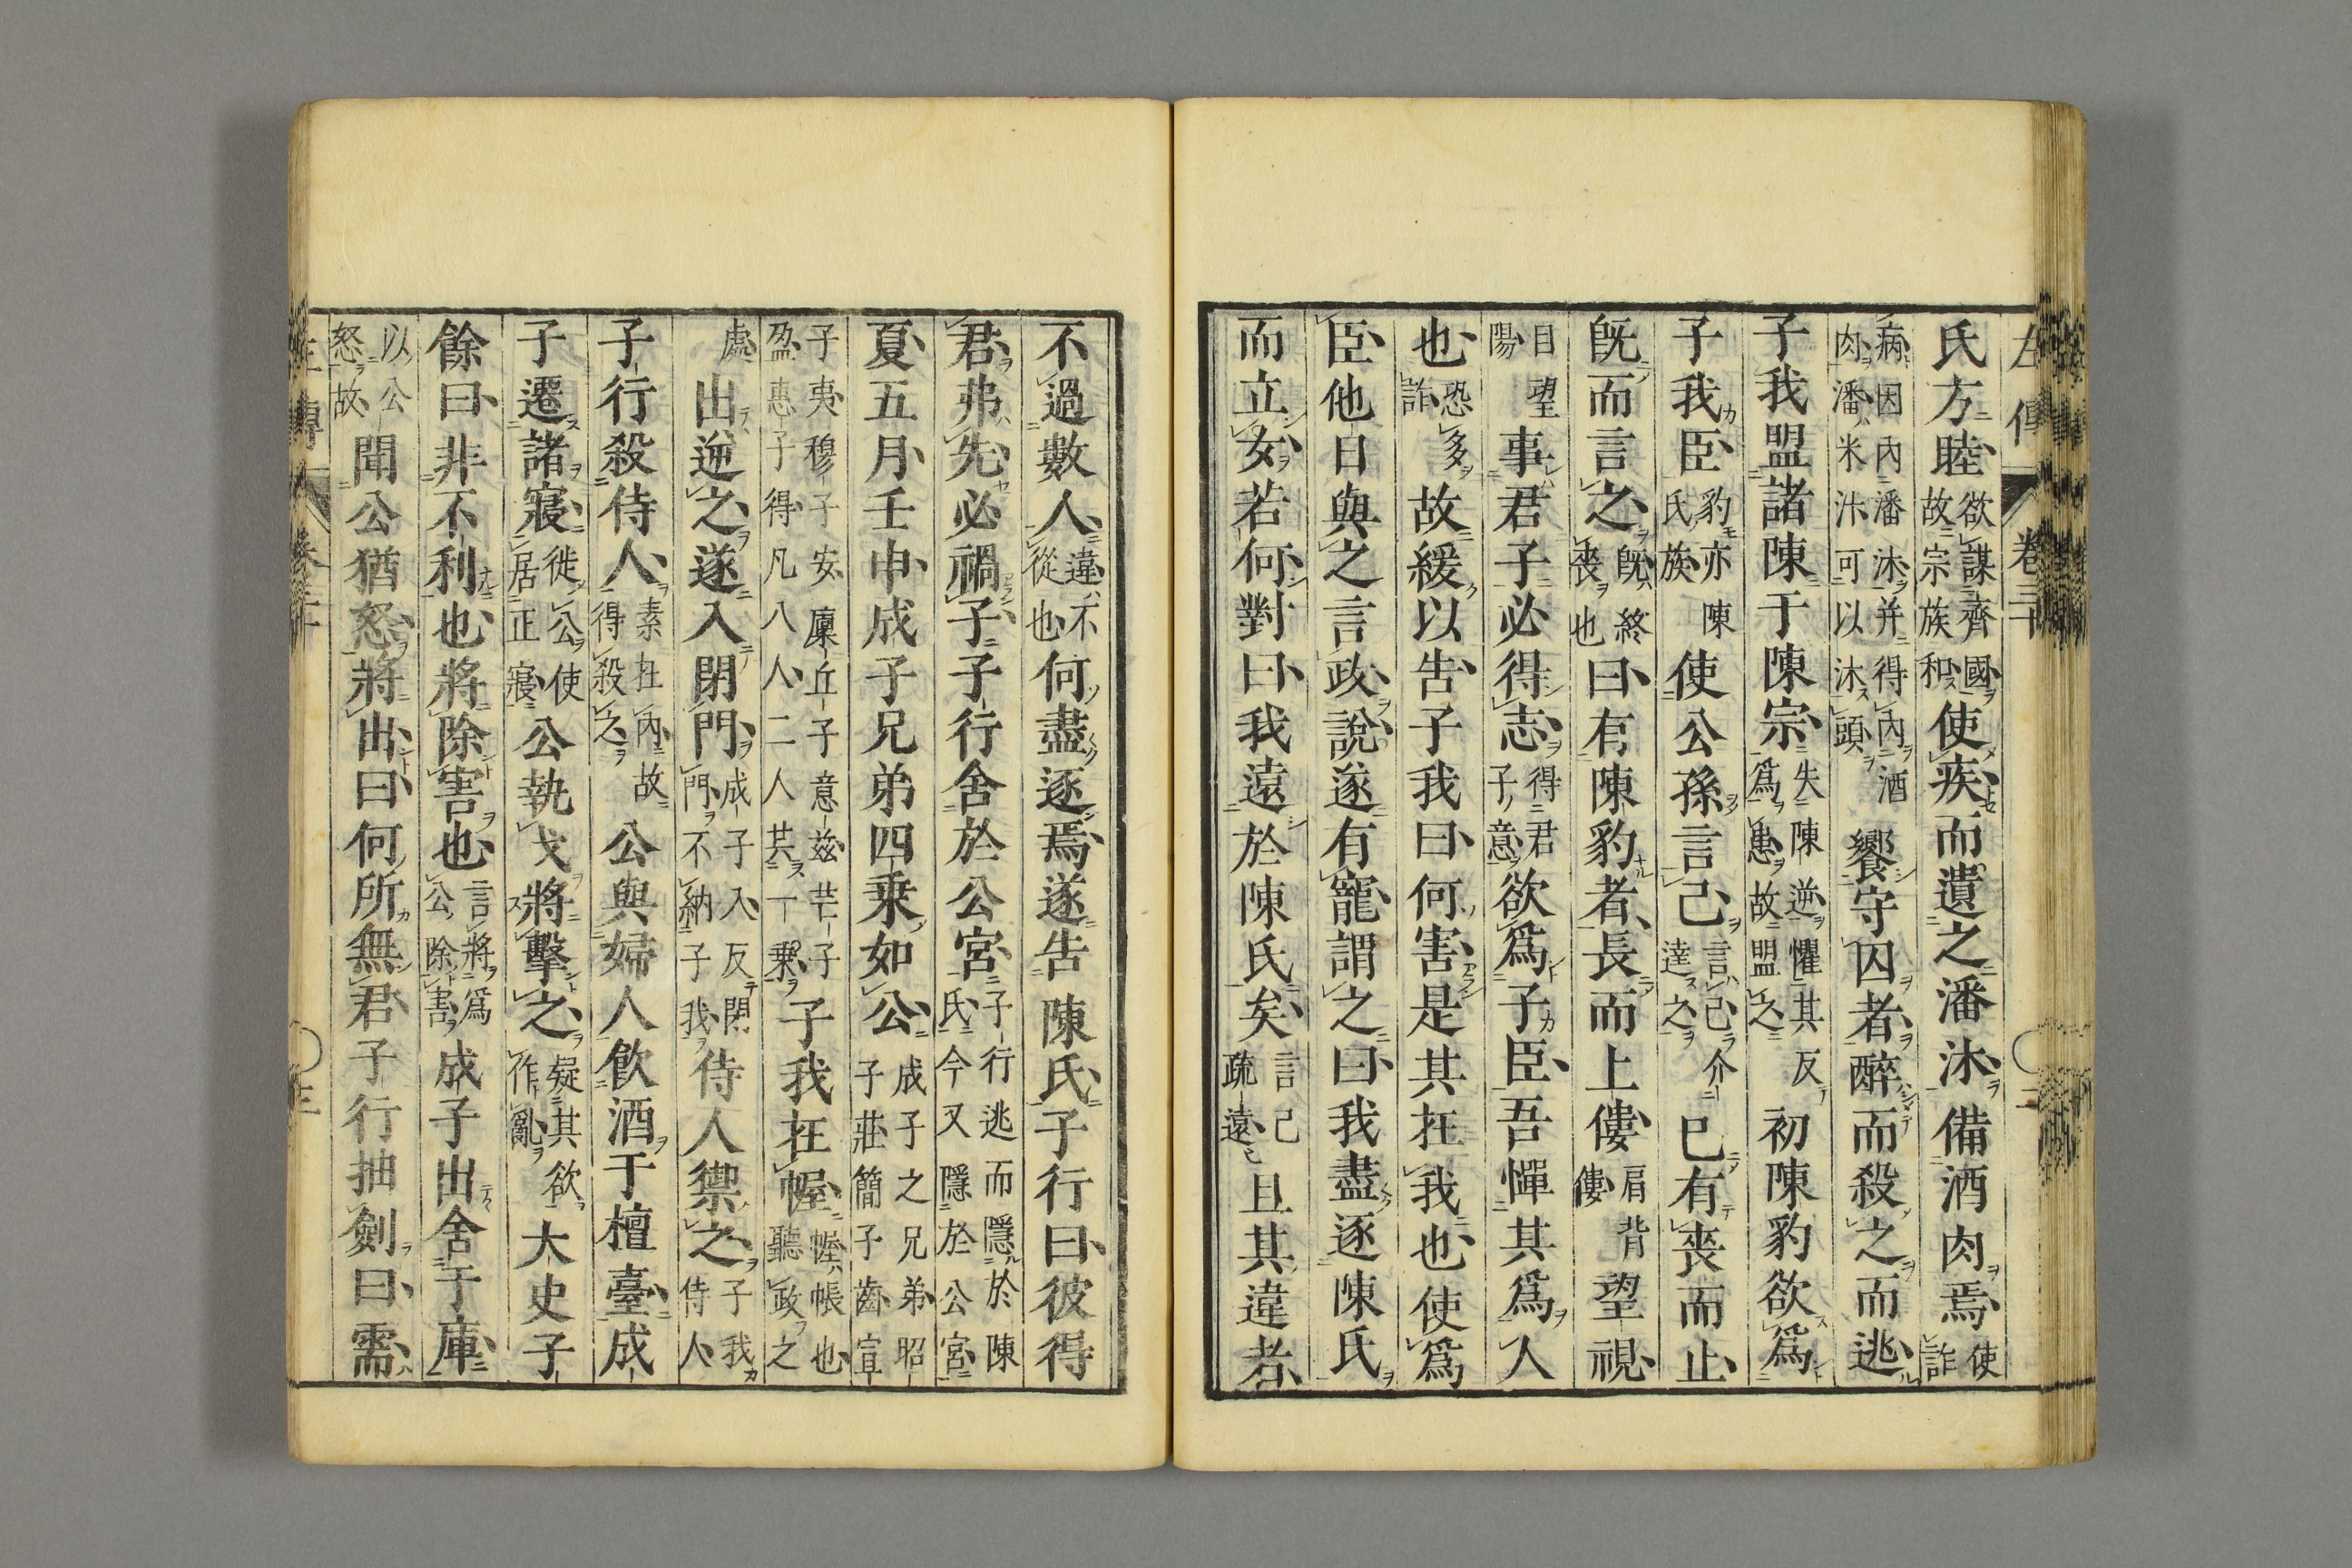 左傳 卷三十 二
氏方睦欲謀齊國故宗族和使疾而遺之潘沐備酒肉焉使詐
病因內潘沐并得內酒肉潘米汁可以沐頭饗守囚者醉而殺之而逃
子我盟諸陳于陳宗失陳逆懼其反爲患故盟之初陳豹欲爲
子我臣豹亦陳氏族使公孫言己言己介達之已有喪而止
旣而言之旣終喪也曰有陳豹者長而上僂肩背僂望視
目望陽事君子必得志得君子意欲爲子臣吾憚其爲人
也恐多詐故緩以告子我曰何害是其在我也使爲
臣他日與之言政說遂有寵謂之曰我盡逐陳氏
而立女若何對曰我遠於陳氏矣言己疏遠且其違者
不過數人違不從也何盡逐焉遂告陳氏子行曰彼得
君弗先必禍子子行舍於公宮子行逃而隱於陳氏今又隱於公宮
夏五月壬申成子兄弟四乘如公成子之兄弟昭子莊簡子齒宣
子夷穆子安廩丘子意茲芒子盈惠子得凡八人二人共一乘子我在幄幄帳也聽政之
處出逆之遂入閉門成子入反閉門不納子我侍人禦之子我侍人
子行殺侍人素在內故得殺之公與婦人飮酒于檀臺成
子遷諸寢徙公使居正寢公執戈將擊之疑其欲作亂大史子
餘曰非不利也將除害也言將爲公除害成子出舍于庫
以公怒故聞公猶怒將出曰何所無君子行抽劍曰需
左傳 卷三十 三